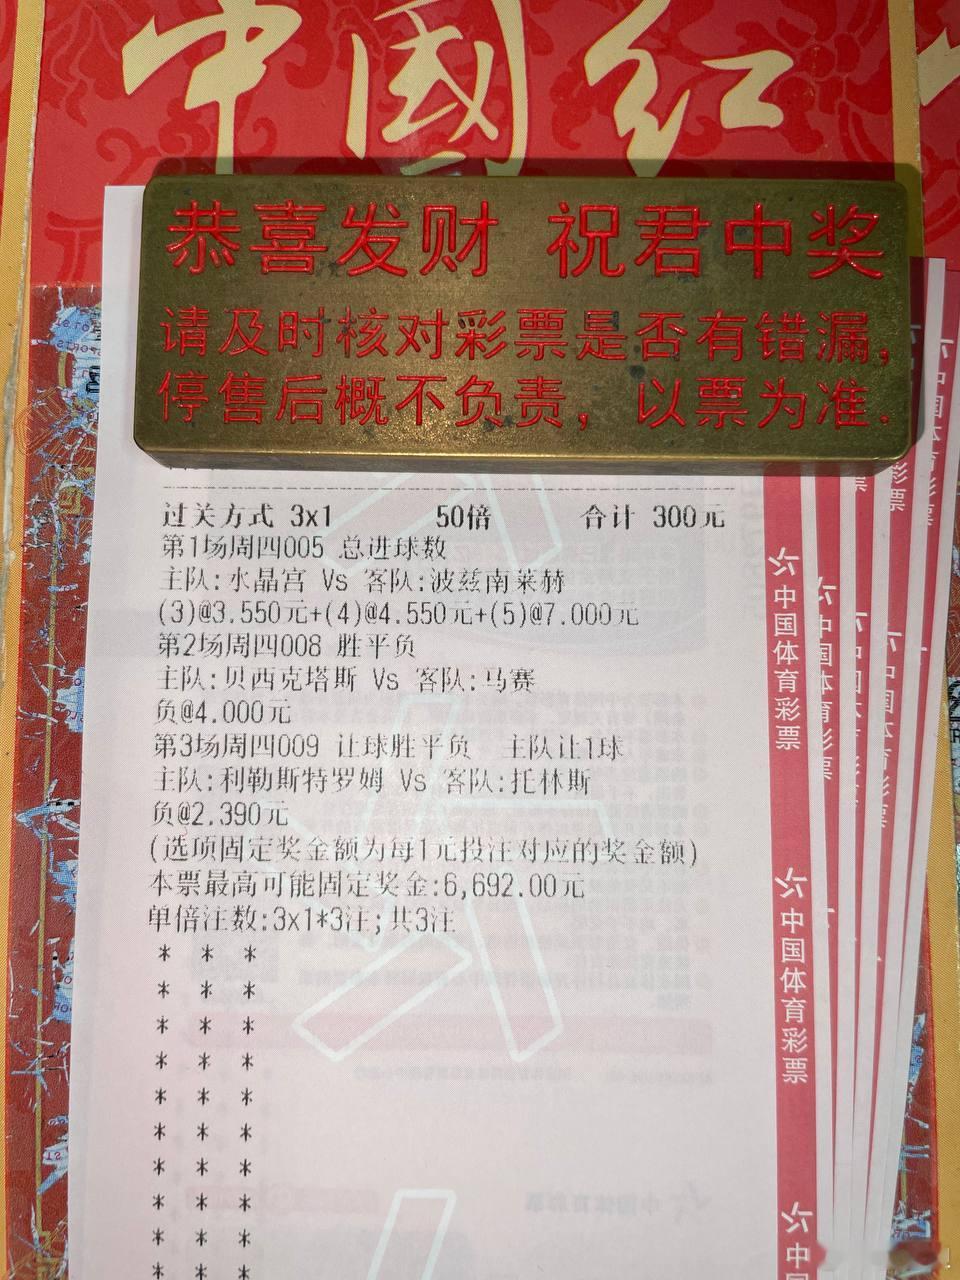 中国红
恭喜发财 祝君中奖
请及时核对彩票是否有错漏,
停售后概不负责, 以票为准.
过关方式 3x1 50倍 合计 300元
第1场周四005 总进球数
主队:水晶宫 Vs 客队:波兹南莱赫
(3)@3.550元+(4)@4.550元+(5)@7.000元
第2场周四008 胜平负
主队:贝西克塔斯 Vs 客队:马赛
负@4.000元
第3场周四009 让球胜平负 主队让1球
主队:利勒斯特罗姆 Vs 客队:托林斯
负@2.390元
(选项固定奖金额为每1元投注对应的奖金额)
本票最高可能固定奖金:6,692.00元
单倍注数:3x1*3注;共3注
* * *
* * *
* * *
* * *
* * *
* * *
* * *
* * *
* * *
* * *
中国体育彩票
中国体育彩票
中国体育彩票
中国体育彩票